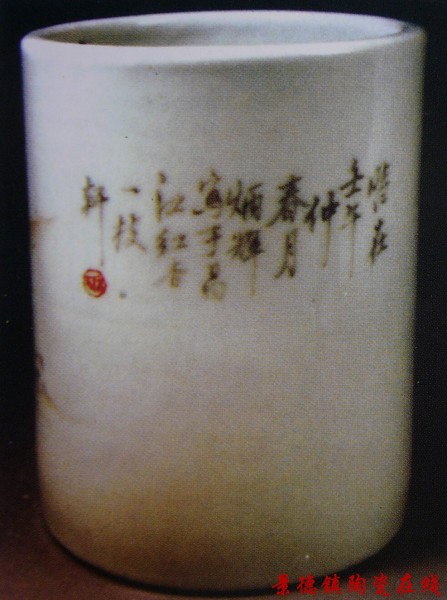 時在
壬午
仲
春月
炳輝
寫于昌
江紅杏
一枝
軒
景德镇陶瓷在线